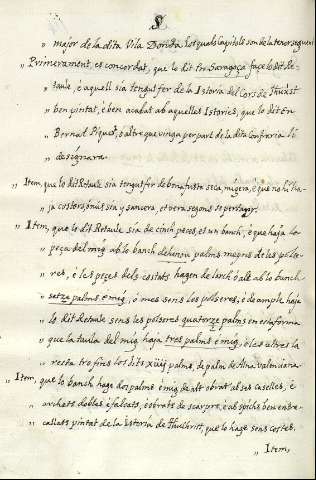 8
„ major de la dita Vila Donada los quals Capitols son de la tenor seguent
„ Primerament, es concordat, que lo dit fra Saragoça façe lo dit Re-
„ taule, é aquell sia tengut fer de la Istoria del Cors de Ihuxst
„ ben pintat, é ben acabat ab aquelles Istories, que lo dit En
„ Bernat Piquer, o altre que vinga per part de la dita Confraria li
„ designara.
„ Item, que lo dit Retaule sia tengut fer de bona fusta seca, migera, é que no hi ha-
„ ja costers, o nus, sia y sancera, et vera segons se pertany.
„ Item, que lo dit Retaule sia de cinch peçes, et un banch, é que haja la
„ peça del mig ab lo banch dehenou palms menys de les polse-
„ res, é les peçes dels costats hagen de larch o alt ab lo banch
„ setze palms é mig, o mes sens les polseres, é de ample haja
„ lo dit Retaule sens les polseres quatorze palms en esta forma
„ que la taula del mig haja tres palms é mig, é les altres la
„ resta tro fins los dits xiiij palms, de palm de Alna Valenciana.
„ Item, que lo banch hage dos palms é mig de alt obrat ab ses caselles, é
„ archets dobles é falcats, é obrats de scarpre, é ab spichs ben entre-
„ tallats pintat de la Istoria de Ihuchrist, que lo hage sens costes.
„ Item,